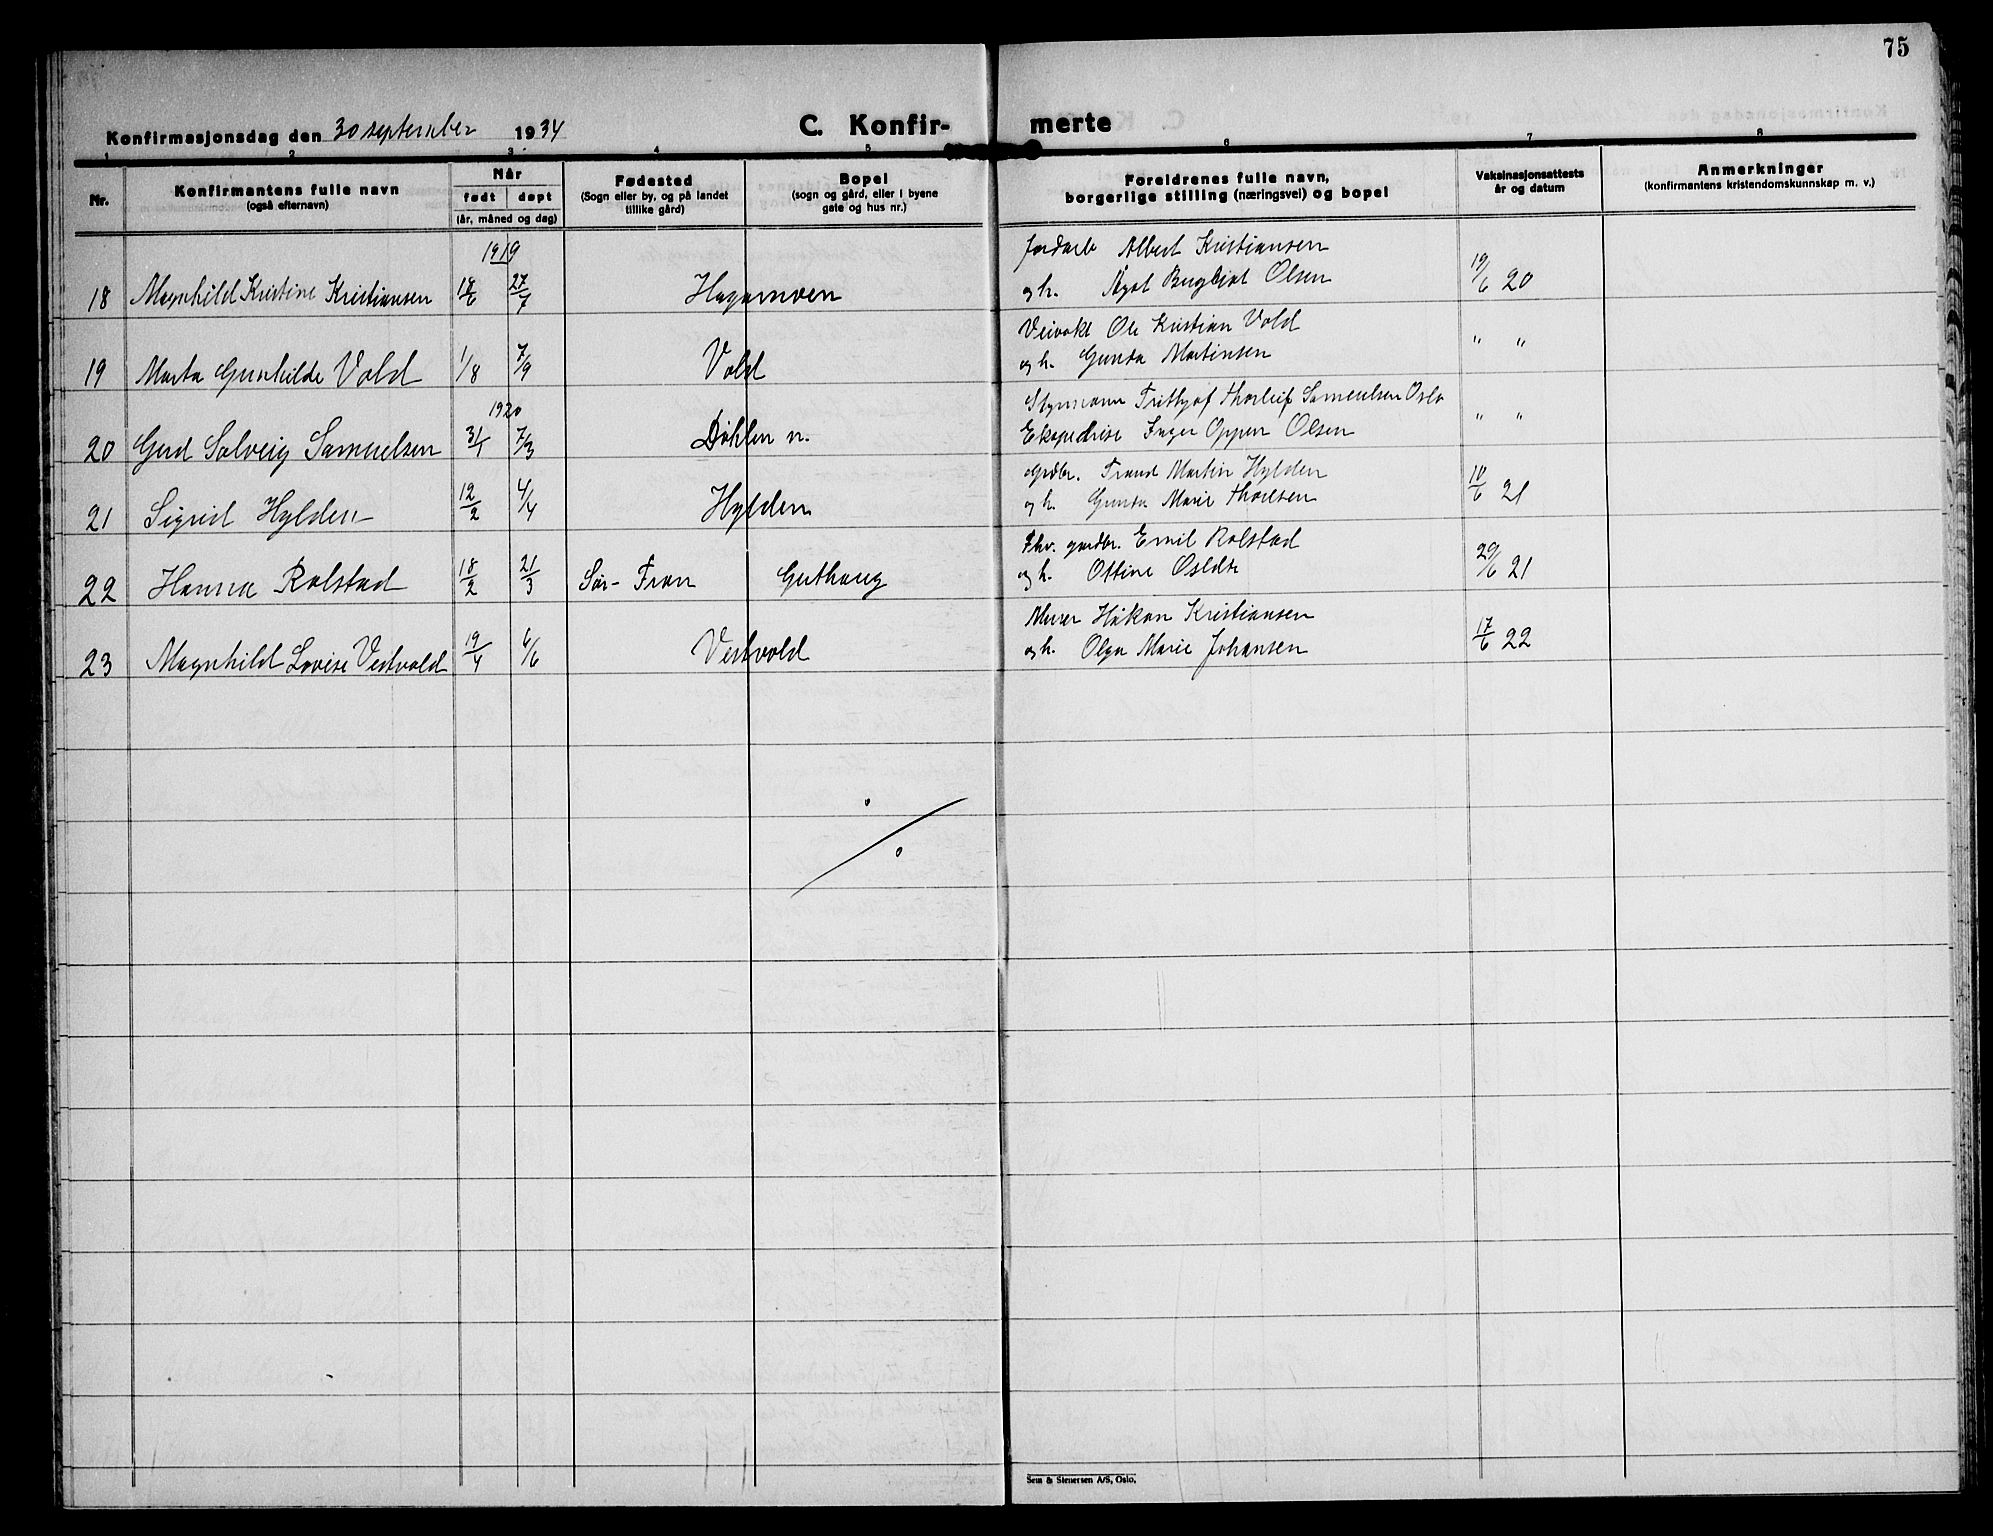 75
Konfirmasjonsdag den 30 september 1934
C. Konfir- merte
1 2 3. 4 5 6 7 8
Nr.
Konfirmantens fulle navn
(også efternavn)
Når
født døpt
(år, måned og dag)
Fødested
(Sogn eller by, og på landet
tillike gård)
Bopel
(sogn og gård, eller i byene
gate og hus nr.)
Foreldrenes fulle navn,
borgerlige stilling (næringsvei) og bopel
Vaksinasjonsattests
år og datum
Anmerkninger
(konfirmantens kristendomskunnskap m. v.)
1919
Jordarb Albert Kristiansen
18 Magnhild Kristine Kristiansen 18/6 27/7 Hagamoen og h. Olsen 19/6 20
Veivokt Ole Kristian Vold
19 Marta Gunhilde Vold 1/8 7/9 Vold og h. Gunda Martinsen " "
1920
Styrmann Frithjof Thorleif Samuelsen Oslo
20 Gerd Solveig Samuelsen 31/1 7/3 Døhlen n. Ekspedrise Inger Oppen Olsen " "
Grdbr. Trond Martin Hylden
21 Sigrid Hylden 12/2 4/4 Hylden og h. Gunda Marie Thoresen 18/6 21
Fhv. gardbr. Emil Rolstad
22 Hanna Rolstad 18/2 21/3 Sør-Fron Guthaug og h. Ottine 29/6 21
Murer Håkon Kristiansen
23 Magnhild Lovise Vestvold 19/4 6/6 Vestvold og h. Olga Marie Johansen 17/6 22
Sem & Stenersen A/S, Oslo.